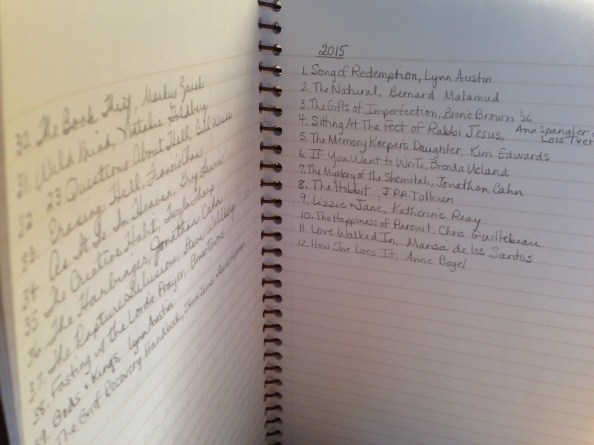 30. The Book Thief, Markus Zusak
31. Wild Mind, Natalie Goldberg
32. 23 Questions About Hell, Bill Wiese
33. Erasing Hell, Francis Chan
34. As It Is In Heaven
35. The Creative Habit, Twyla Tharp
36. The Harbinger, Jonathan Cahn
37. The Rapture Delusion,
38. Fasting w/ the Lord's Prayer,
39. Gods + Kings, Lynn Austin
The Grief Recovery Handbook,
2015
1. Song of Redemption, Lynn Austin
2. The Natural, Bernard Malamud
3. The Gifts of Imperfection, Brene Brown
4. Sitting At The Feet of Rabbi Jesus, Ann Spangler
Lois Tver
5. The Memory Keeper's Daughter, Kim Edwards
6. If You Want to Write, Brenda Ueland
7. The Mystery of the Shemitah, Jonathon Cahn
8. The Hobbit J.R.R. Tolkien
9. Lizzie + Jane, Katherine Reay
10. The Happiness of Pursuit, Chris Guillebeau
11. Love Walked In, Marisa de los Santos
12. How She Does It, Anne Bogel